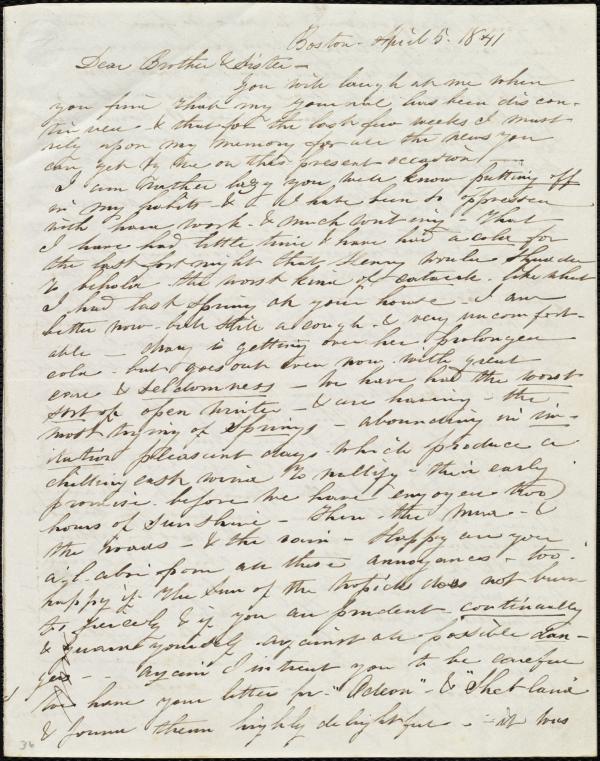 Boston - April 5. 1841
Dear Brother & Sister -
You will laugh at me when
you find that my journal has been discon-
tinued & that for the last few weeks I must
rely upon my memory for all the news you
can get by me on this present occasion
I am rather lazy you well know putting off
in my habits - & I have been so oppressed
with hard work - & much writing - that
I have had little time & have had a cold for
the last fortnight that Henry would shudder
to behold - the worst kind of catarrh - like what
I had last Spring at your house - I am
better now - but still a cough - & very uncomfort-
able - Mary is getting over her prolonged
cold - but goes out even now with great
care & seldomness - We have had the worst
sort of open winter - & are having the
most of Springs - abounding in im-
itation pleasant days - which produce a
chilling east wind to nullify their early
promise before we have enjoyed two
hours of sunshine - then the mud - &
the roads - & the rain - Happy are you
afar from all these annoyances - too
happy if the Sun of the tropics does not burn
too fiercely & if you are prudent continually
& guard yourself against all possible dan-
gers - Again I intreat you to be careful
We have your letter pr. "Odeon" - & "Shetland"
& found them highly delightful - it was
36